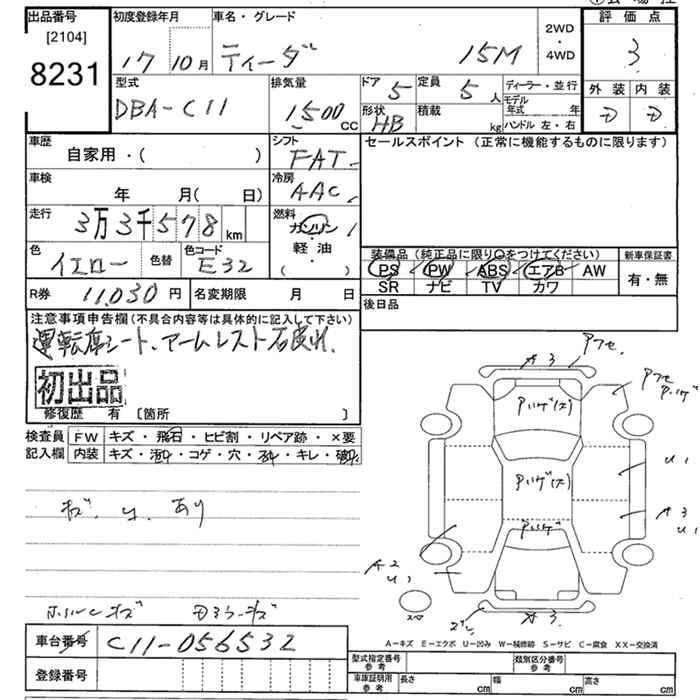 出品番号 初度登録年月 車名・グレード 2WD・4WD 評価点
[2104]
8231
17 10月 ティーダ 15M 3
型式 排気量 ドア 5 定員 5人 ディーラー・並行 外装 内装
DBA-C11 1500cc 形状 HB 積載 kg モデル年式 年 ハンドル 左・右 D D
車歴 シフト セールスポイント (正常に機能するものに限ります)
自家用・( ) FAT
車検 冷房
年 月( 日) AAC
走行 3万3千578km 燃料
ガソリン
軽・油
( ・ )
色 イエロー 色替 色コード E32
装備品 (純正品に限り○をつけてください) 新車保証書
PS PW ABS エアB AW 有・無
SR ナビ TV カワ
R券 11,030円 名変期限 月 日 後日品
注意事項申告欄(不具合内容等は具体的に記入して下さい)
運転席シート、アームレスト
初出品
修復歴 有 [箇所 ]
検査員 FW キズ・飛石・ヒビ割・リペア跡・×要
記入欄 内装 キズ・コゲ・穴・キレ
あり
A3
U1
A3 U1
A2
U1
A3
A-キズ E-エクボ U-凹み W-補修跡 S-サビ C-腐食 XX-交換済
車台番号 C11-056532
登録番号
型式指定番号 参考 類別区分番号 参考
車庫証明用 参考 長さ cm 幅 cm 高さ cm